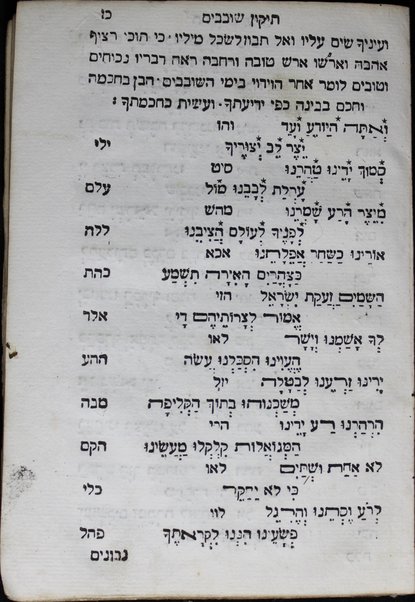 תיקון שובבים כז
ועיניך שים עליו ואל תבוז לשכל מיליו כי תוכו רציף
אהבה וארשו ארש טובה ורחבה ראה דבריו נכיחים
וטובים לומר אחר הוידוי בימי השובבים הבן בחכמה
וחכם בבינה כפי ידיעתך ועשית כחכמתך:
וְאַתָּה הַיּוֹדֵעַ וָעֵד והו
יֵצֶר לֵב יְצוּרֶיךָ ילי
סְמוֹךְ יָדֵינוּ טַהֲרֵנוּ סיט
עָרְלַת לְבָבֵנוּ מוֹל עלם
מִיֵּצֶר הָרַע שָׁמְרֵנוּ מהש
לְפָנֶיךָ לְעוֹלָם הַצִּיבֵנוּ ללה
אוֹרֵינוּ כַּשַּׁחַר אֲפֵלָתֵנוּ אכא
כַּצָּהֳרַיִם הָאִירָה תִּשְׁמַע כהת
הַשָּׁמַיִם זַעֲקַת יִשְׂרָאֵל הזי
אֱמוֹר לְצָרוֹתֵיהֶם דָּי אלד
לְךָ אָשַׁמְנוּ וְיָשָׁר לאו
הֶעֱוִינוּ הִסְכַּלְנוּ עֲשֵׂה ההע
יָרִינוּ זַרְעֵנוּ לְבַטָּלָה יזל
מְשַׁכְנוּהוּ בְּתוֹךְ הַקְּלִיפָּה מבה
הִרְהַרְנוּ רַע יָדֵינוּ הרי
הַמְּגוֹאָלוֹת קִלְקְלוּ מַעֲשֵׂינוּ הקם
לֹא אַחַת וּשְׁתַּיִם לאו
כִּי לֹא יֵחָקֵר כלי
לְרֹעַ וֶסְתֵּנוּ וְהֶרְגֵּל לוו
פְּשָׁעֵינוּ הִנְנוּ לִקְרָאתֶךָ פהל
נבונים